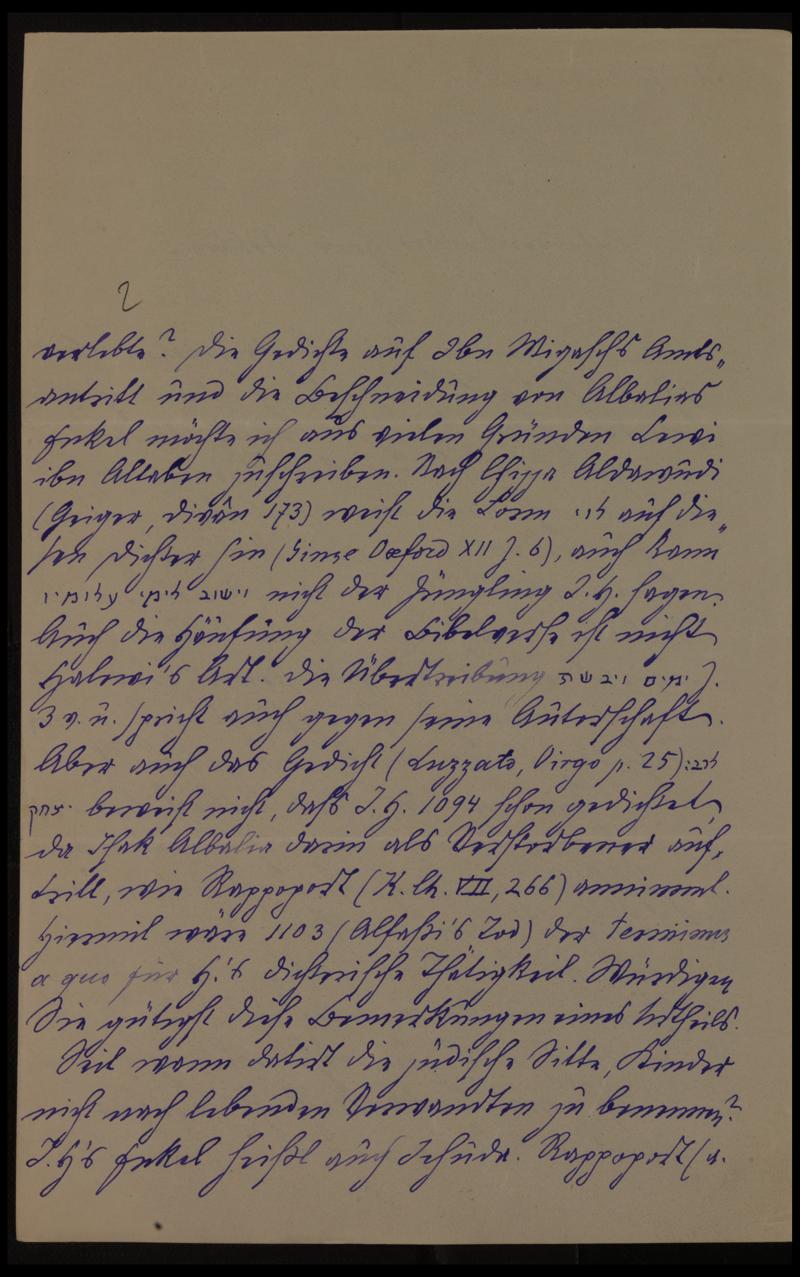 2
verlebte? Die Gedichte auf Ibn Migasch's Amts-
antritt und die Beschneidung von Albalias
Enkel möchte ich aus vielen Gründen Lewi
ibn Altaben zuschreiben. Nach Chijja Aldawûdi
(Geiger, Divân 173) weist die Form לוי auf die-
sen Dichter hin (Ginze Oxford XII Z. 6), auch kann
וישוב לימי עלומיו nicht der Jüngling J. H. sagen.
Auch die Häufung der Bibelverse ist nicht
Halewi's Art. Die Übertreibung ימים ויבשה Z.
3 v. u. spricht auch gegen seine Autorschaft.
Aber auch das Gedicht (Luzzato, Virgo p. 25): לרב
יצחק beweist nicht, daß J. H. 1094 schon gedichtet,
da Isak Albalia darin als Verstorbener auf-
tritt, wie Rappoport (K. Ch. VII, 266) annimmt.
Hiermit wäre 1103 (Alfaßi's Tod) der Terminus
a quo für H.'s dichterische Thätigkeit. Würdigen
Sie gütigst diese Bemerkungen eines Urtheils.
Seit wann datirt die jüdische Sitte, Kinder
nicht nach lebenden Verwandten zu benennen?
J. H's Enkel heißt auch Jehuda. Rappoport (a.